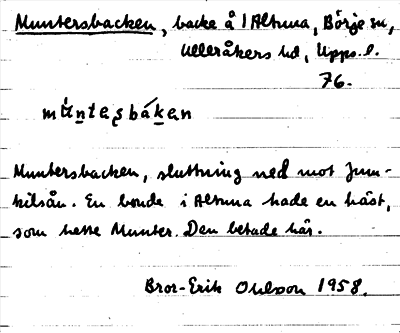 Muntersbacken, backe å 1 Altuna, Börje sn,
Ulleråkers hd, Upps. l.
76.
mùntəʂbákən
Muntersbacken, sluttning ned mot Jum-
kilsån. En bonde i Altuna hade en häst,
som hette Munter. Den betade här.
Bror-Erik Ohlsson 1958.